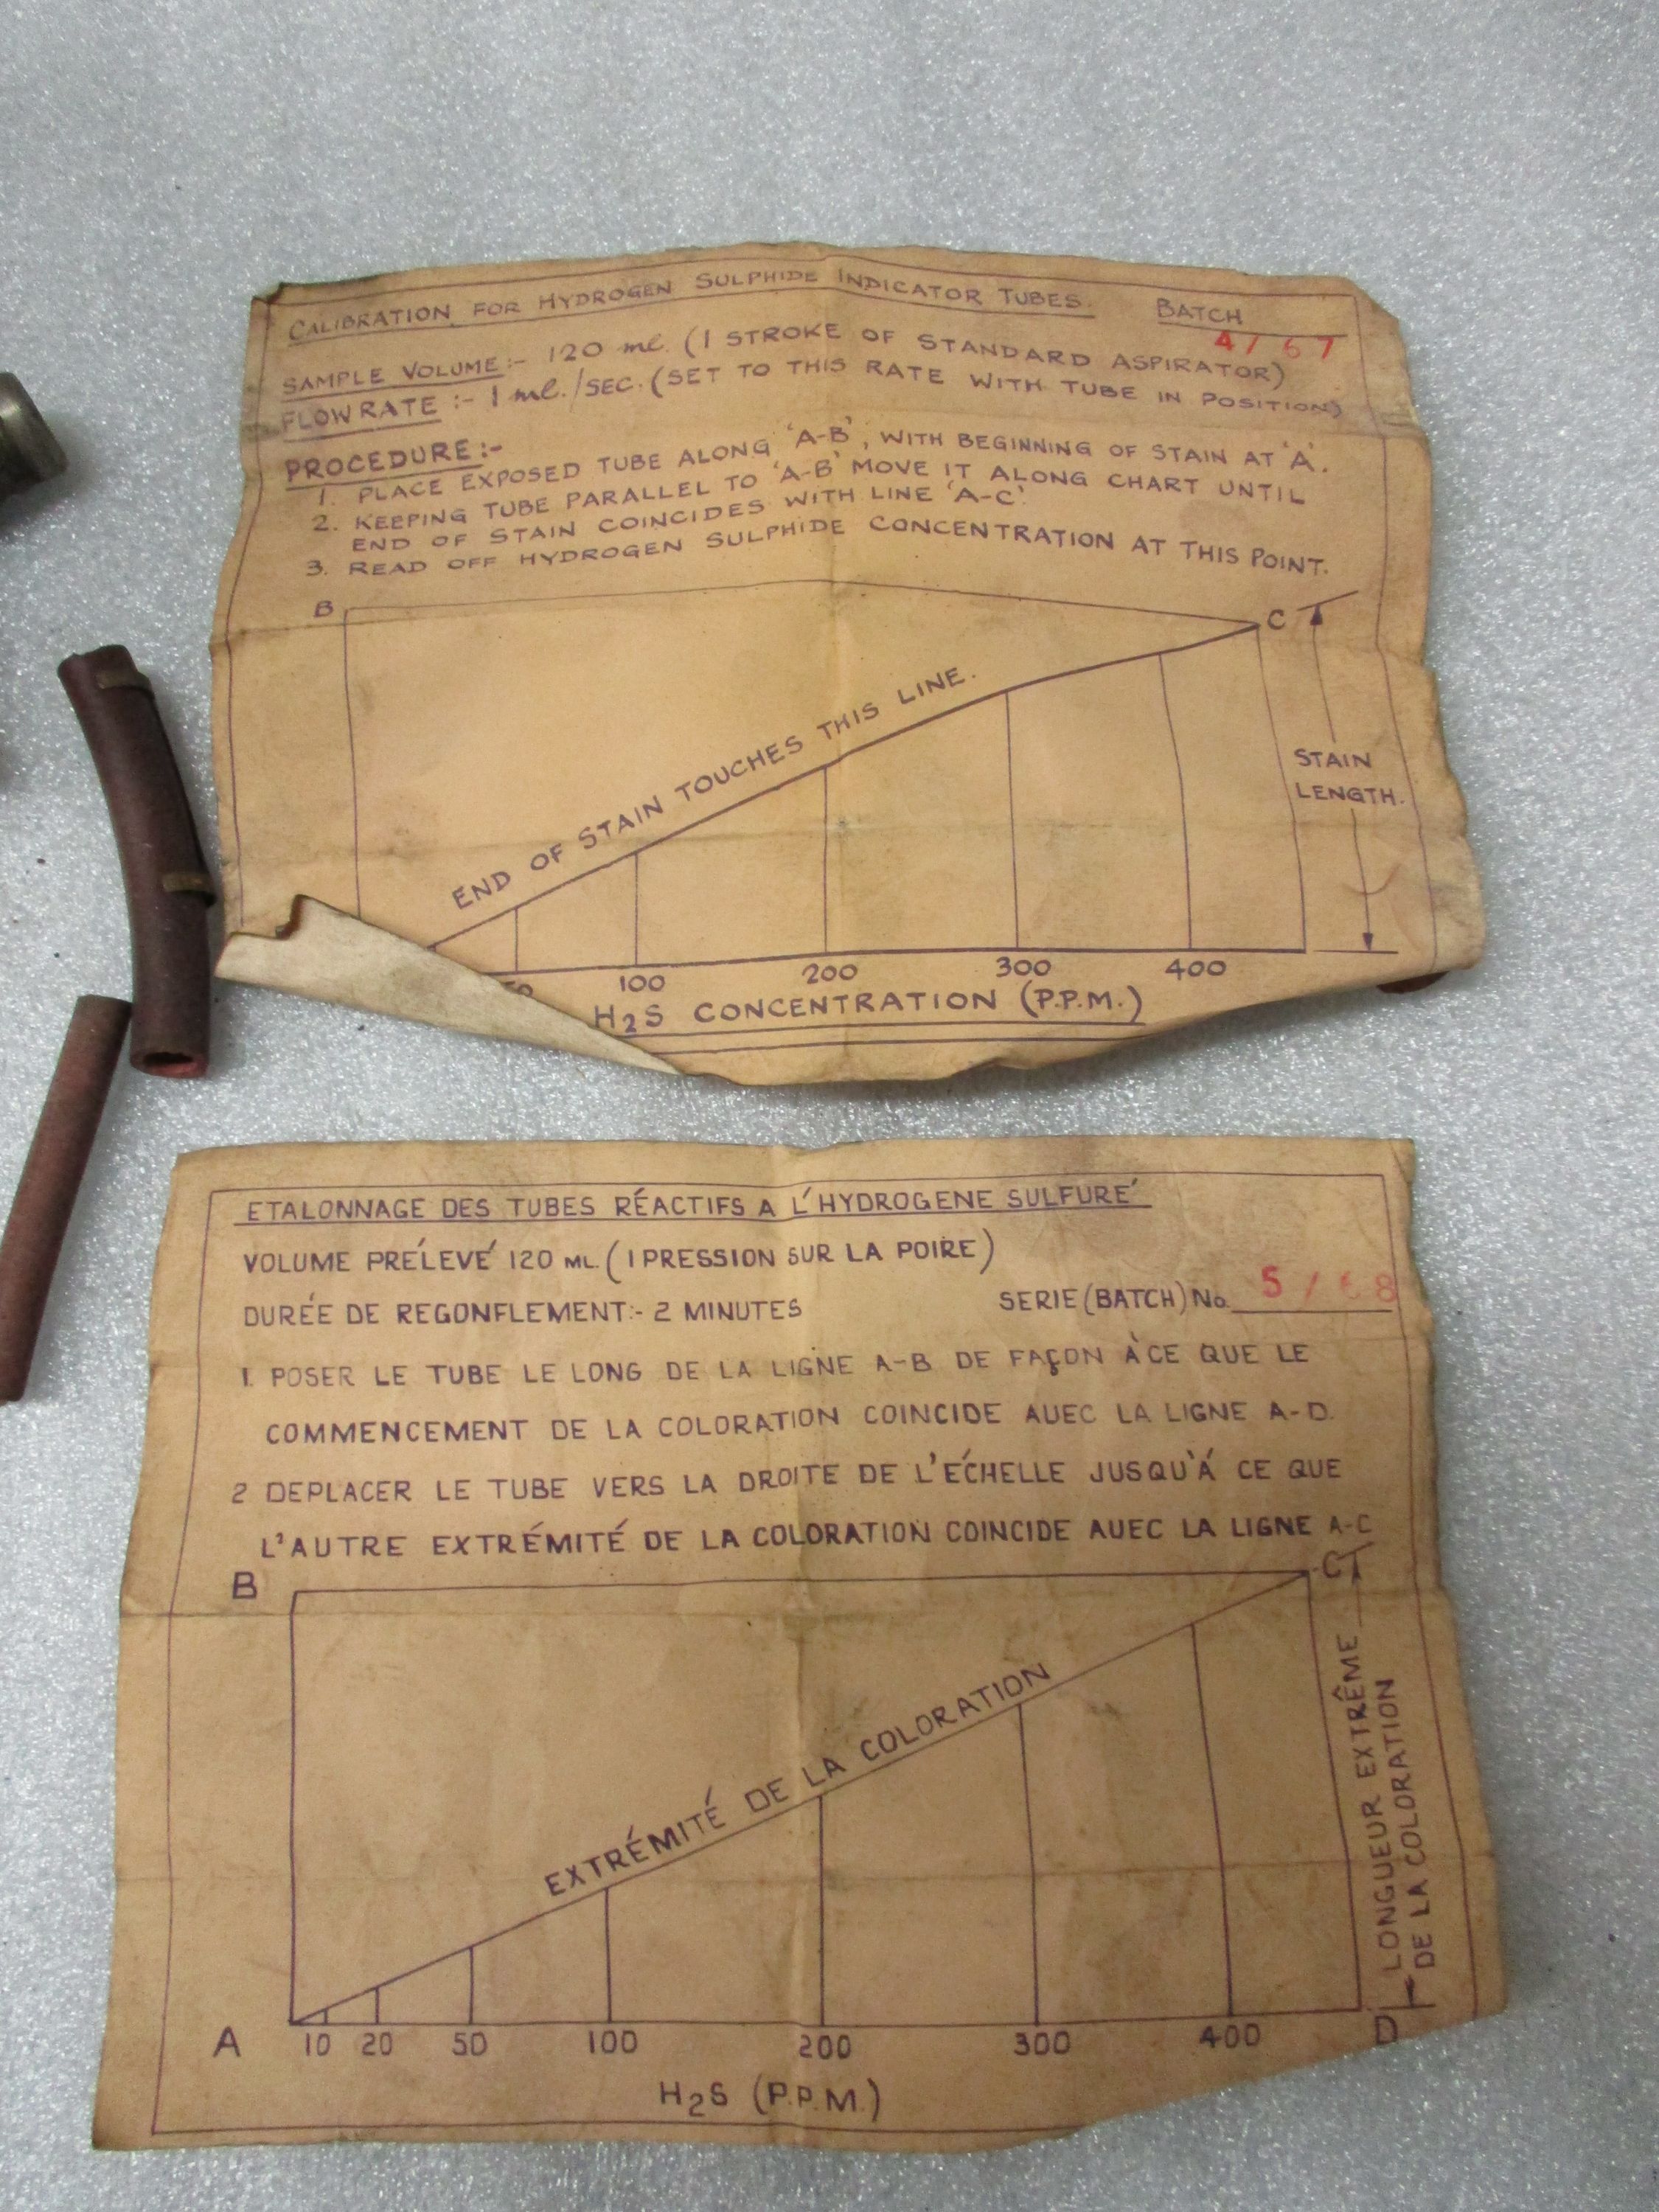 CALIBRATION FOR HYDROGEN SULPHIDE INDICATOR TUBES. BATCH
4/67
SAMPLE VOLUME:- 120 ml. (1 STROKE OF STANDARD ASPIRATOR)
FLOW RATE :- 1 ml./SEC. (SET TO THIS RATE WITH TUBE IN POSITION)
PROCEDURE:-
1. PLACE EXPOSED TUBE ALONG 'A-B', WITH BEGINNING OF STAIN AT 'A'.
2. KEEPING TUBE PARALLEL TO 'A-B' MOVE IT ALONG CHART UNTIL
END OF STAIN COINCIDES WITH LINE 'A-C'.
3. READ OFF HYDROGEN SULPHIDE CONCENTRATION AT THIS POINT.
B
C
END OF STAIN TOUCHES THIS LINE.
STAIN
LENGTH.
100 200 300 400
H2S CONCENTRATION (P.P.M.)
ETALONNAGE DES TUBES RÉACTIFS A L'HYDROGENE SULFURÉ
VOLUME PRÉLEVÉ 120 ML. (1 PRESSION SUR LA POIRE)
DURÉE DE REGONFLEMENT:- 2 MINUTES
SERIE (BATCH) No. 5/68
1. POSER LE TUBE LE LONG DE LA LIGNE A-B DE FAÇON À CE QUE LE
COMMENCEMENT DE LA COLORATION COINCIDE AUEC LA LIGNE A-D.
2 DEPLACER LE TUBE VERS LA DROITE DE L'ÉCHELLE JUSQU'Á CE QUE
L'AUTRE EXTRÉMITÉ DE LA COLORATION COINCIDE AUEC LA LIGNE A-C
B
C
EXTRÉMITÉ DE LA COLORATION
LONGUEUR EXTRÊME
DE LA COLORATION
A 10 20 50 100 200 300 400 D
H2S (P.P.M.)